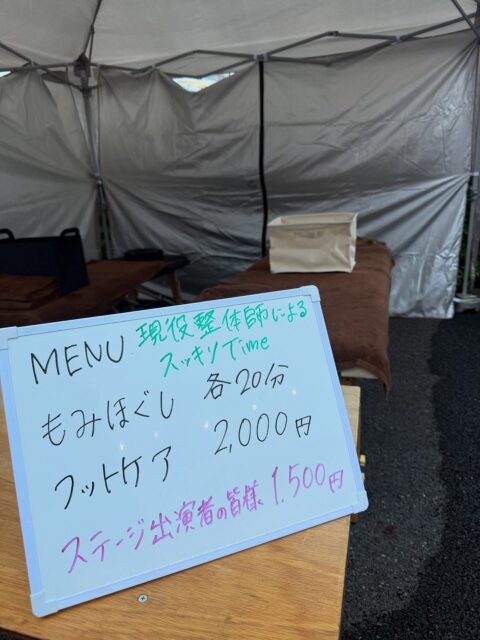 MENU 現役整体師による
スッキリTime
もみほぐし 各20分
フットケア 2,000円
ステージ出演者の皆様 1,500円